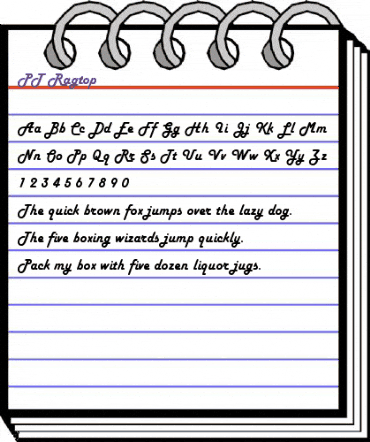 PT Ragtop
Aa Bb Cc Dd Ee Ff Gg Hh Ii Jj Kk Ll Mm
Nn Oo Pp Qq Rr Ss Tt Uu Vv Ww Xx Yy Zz
1 2 3 4 5 6 7 8 9 0
The quick brown fox jumps over the lazy dog.
The five boxing wizards jump quickly.
Pack my box with five dozen liquor jugs.